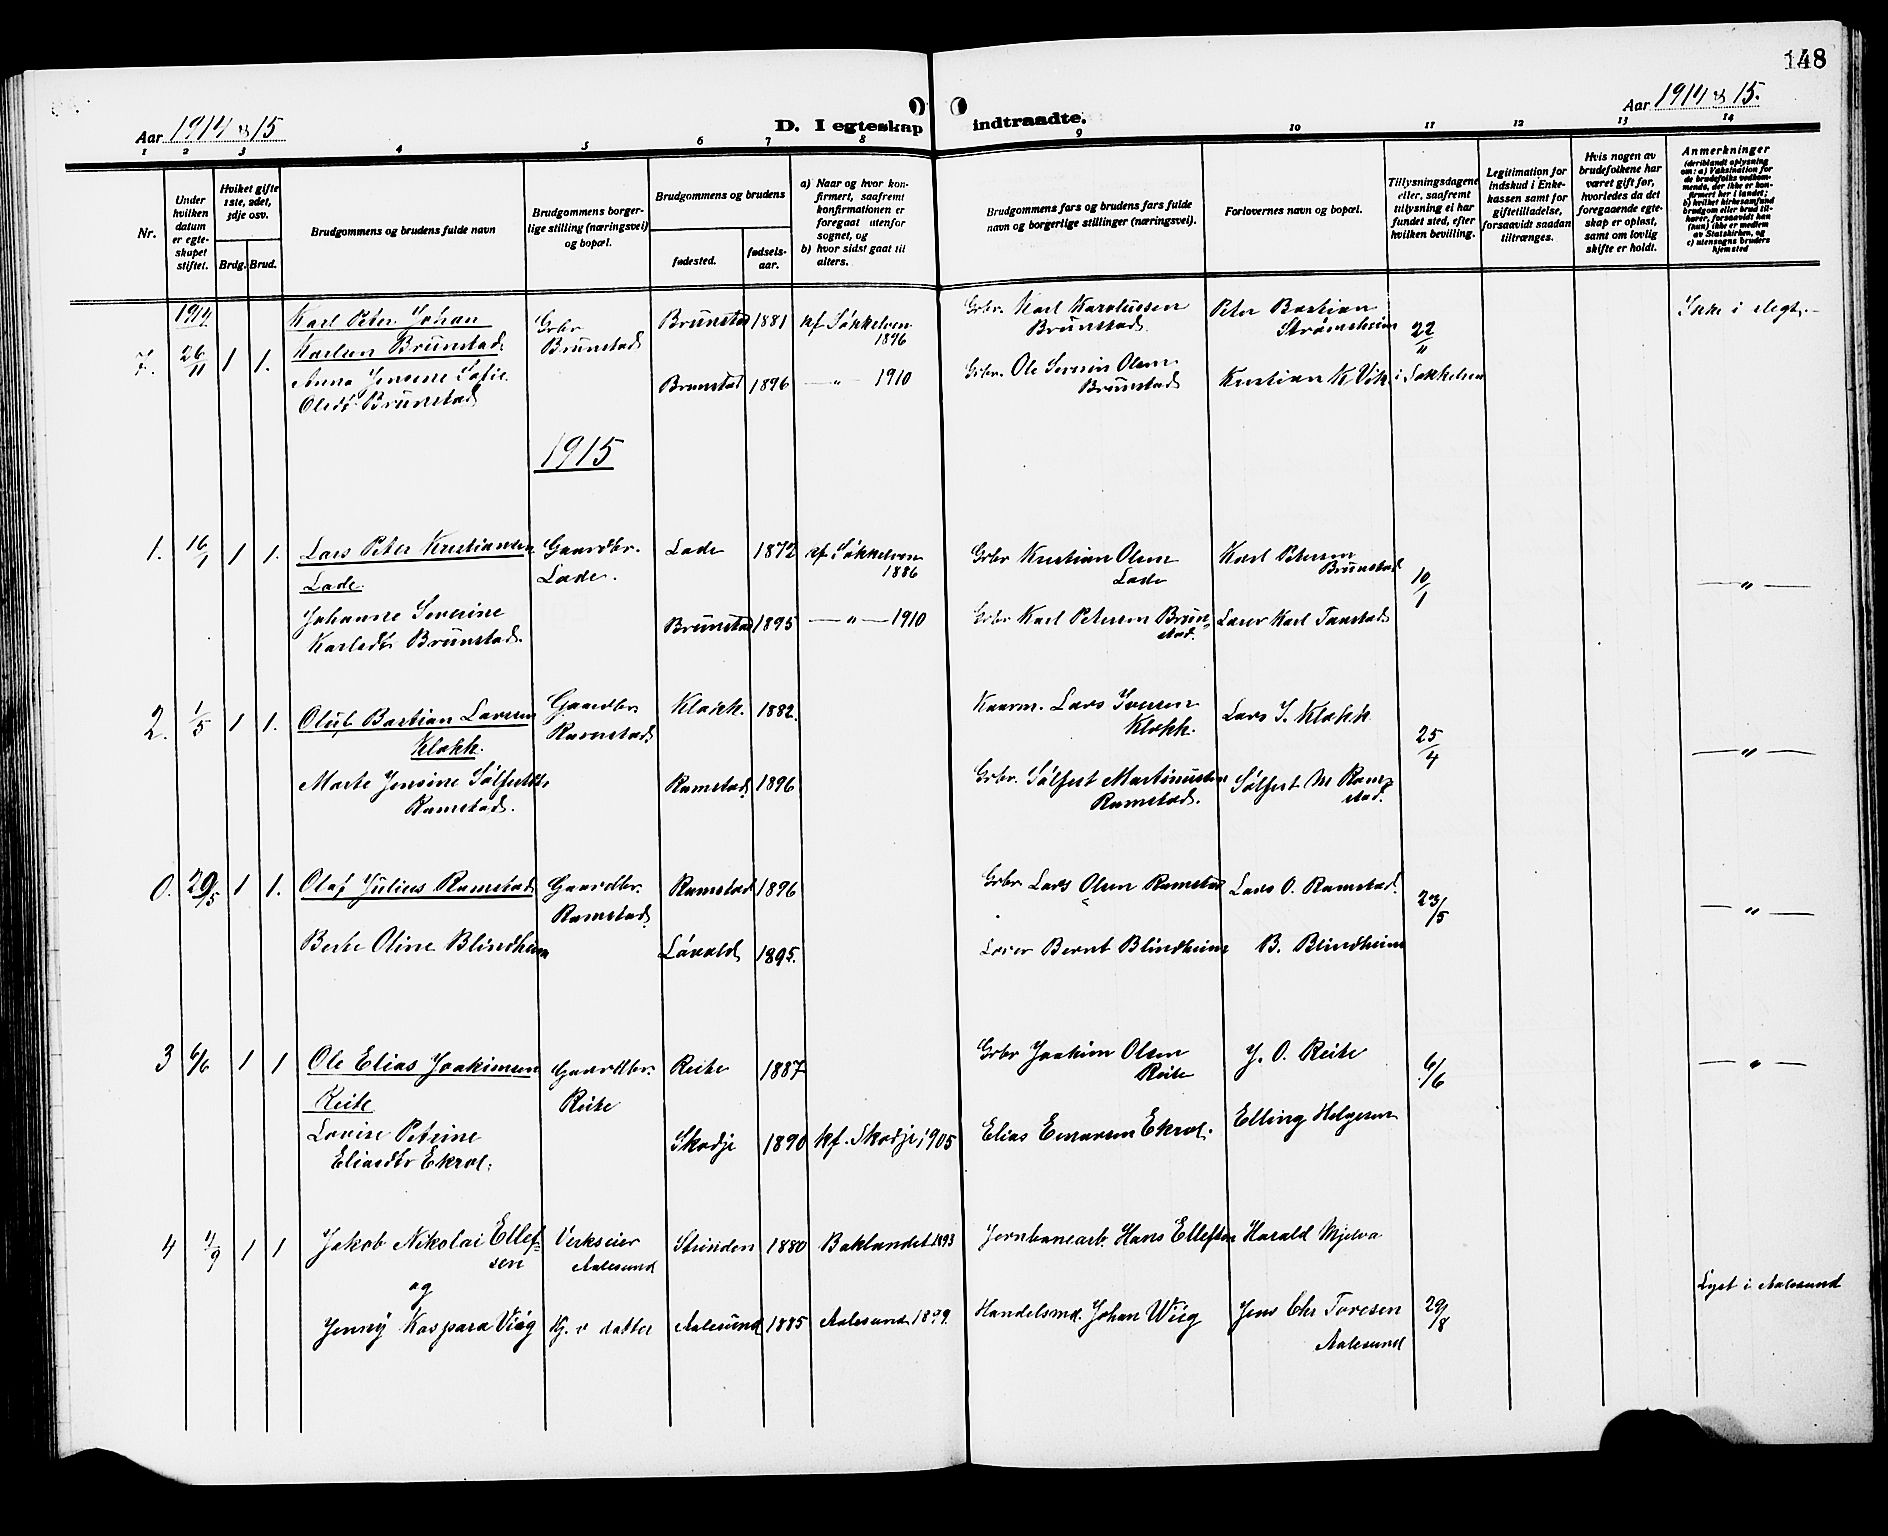 148
Aar 1914 & 15
D. I egteskap indtraadte.
Aar 1914 & 15.
1 2 3 4 5 6 7 8 9 10 11 12 13 14
Nr.
Under hvilken datum er egteskapet stiftet.
Hvilket gifte 1ste, 2det, 3dje osv.
Brdg. Brud.
Brudgommens og brudens fulde navn
Brudgommens borgerlige stilling (næringsvei) og bopæl.
Brudgommens og brudens
fødested.
fødselsaar.
a) Naar og hvor konfirmert, saafremt konfirmationen er foregaat utenfor sognet, og
b) hvor sidst gaat til alters.
Brudgommens fars og brudens fars fulde navn og borgerlige stillinger (næringsvei).
Forlovernes navn og bopæl.
Tillysningsdagene eller, saafremt tillysning ei har fundet sted, efter hvilken bevilling.
Legitimation for indskud i Enkekassen samt for giftetilladelse, forsaavidt saadan tiltrænges.
Hvis nogen av brudefolkene har været gift før, hvorledes da det foregaaende egteskap er opløst, samt om lovlig skifte er holdt.
Anmerkninger
(deriblandt oplysning om: a) Vaksination for de brudefolks vedkommende, der ikke er konfirmert her i landet; b) hvilket kirkesamfund brudgom eller brud tilhører, forsaavidt han (hun) ikke er medlem av Statskirken, og c) utensogns bruders hjemsted
1914
7. 26/11 1 1. Karl Peter Johan Karlsen Brunstad. Grbr Brunstad Brunstad 1881 kf Søkkelven 1896 Grbr. Karl Karolussen Brunstad. Peter Bastian Strømsheim 22/11 Ikke i slegt.
Anna Jensine Sofie Olsdtr Brunstad Brunstad 1896 — " — 1910 Grbr. Ole Severin Olsen Brunstad Kristian K Vik i Søkkelven
1915
1. 16/1 1 1. Lars Peter Kristiansen Lade. Gaardbr. Lade. Lade 1872 kf Søkkelven 1886 Grbr Kristian Olsen Lade Karl Petersen Brunstad 10/1 — " —
Johanne Severine Karlsdtr Brunstad. Brunstad 1895 — " — 1910 Grbr Karl Petersen Brunstad. Lærer Karl Tanstad
2. 1/5 1 1. Oluf Bastian Larsen Klokk. Gaardbr Ramstad Klokk. 1882. Kaarm. Lars Iversen Klokk. Lars I. Klokk 25/4 — " —
Marte Jensine Sølfestdtr Ramstad. Ramstad. 1896 Grbr. Sølfest Martinussen Ramstad. Sølfest M Ramstad.
0. 29/5 1 1. Olaf Julius Ramstad Gaardbr. Ramstad. Ramstad 1896 Grbr Lars Olsen Ramstad Lars O. Ramstad. 23/5 — " —
Berte Oline Blindheim Løvold 1895. Lærer Bernt Blindheim B. Blindheim
3 6/6 1 1 Ole Elias Joakimsen Reite Gaardbr. Reite Reite 1887 Grbr Joakim Olsen Reite J. O. Reite 6/6 — " —
Lovise Petrine Eliasdtr Ekrol. Skodje 1890 kf. Skodje 1905 Elias Ekrol. Elling Helgesen
4 4/9 1 1 Jakob Nikolai Ellefsen Verkseier Aalesund Strinden 1880 Baklandet 1893 Jernbanearb. Hans Ellefsen Harald Mjelva
og
Jenny Kaspara Wiig Hj. v datter Aalesund 1885 Aalesund 1899. Handelsmd. Johan Wiig Jens Chr Toresen Aalesund 29/8 Lyst i Aalesund